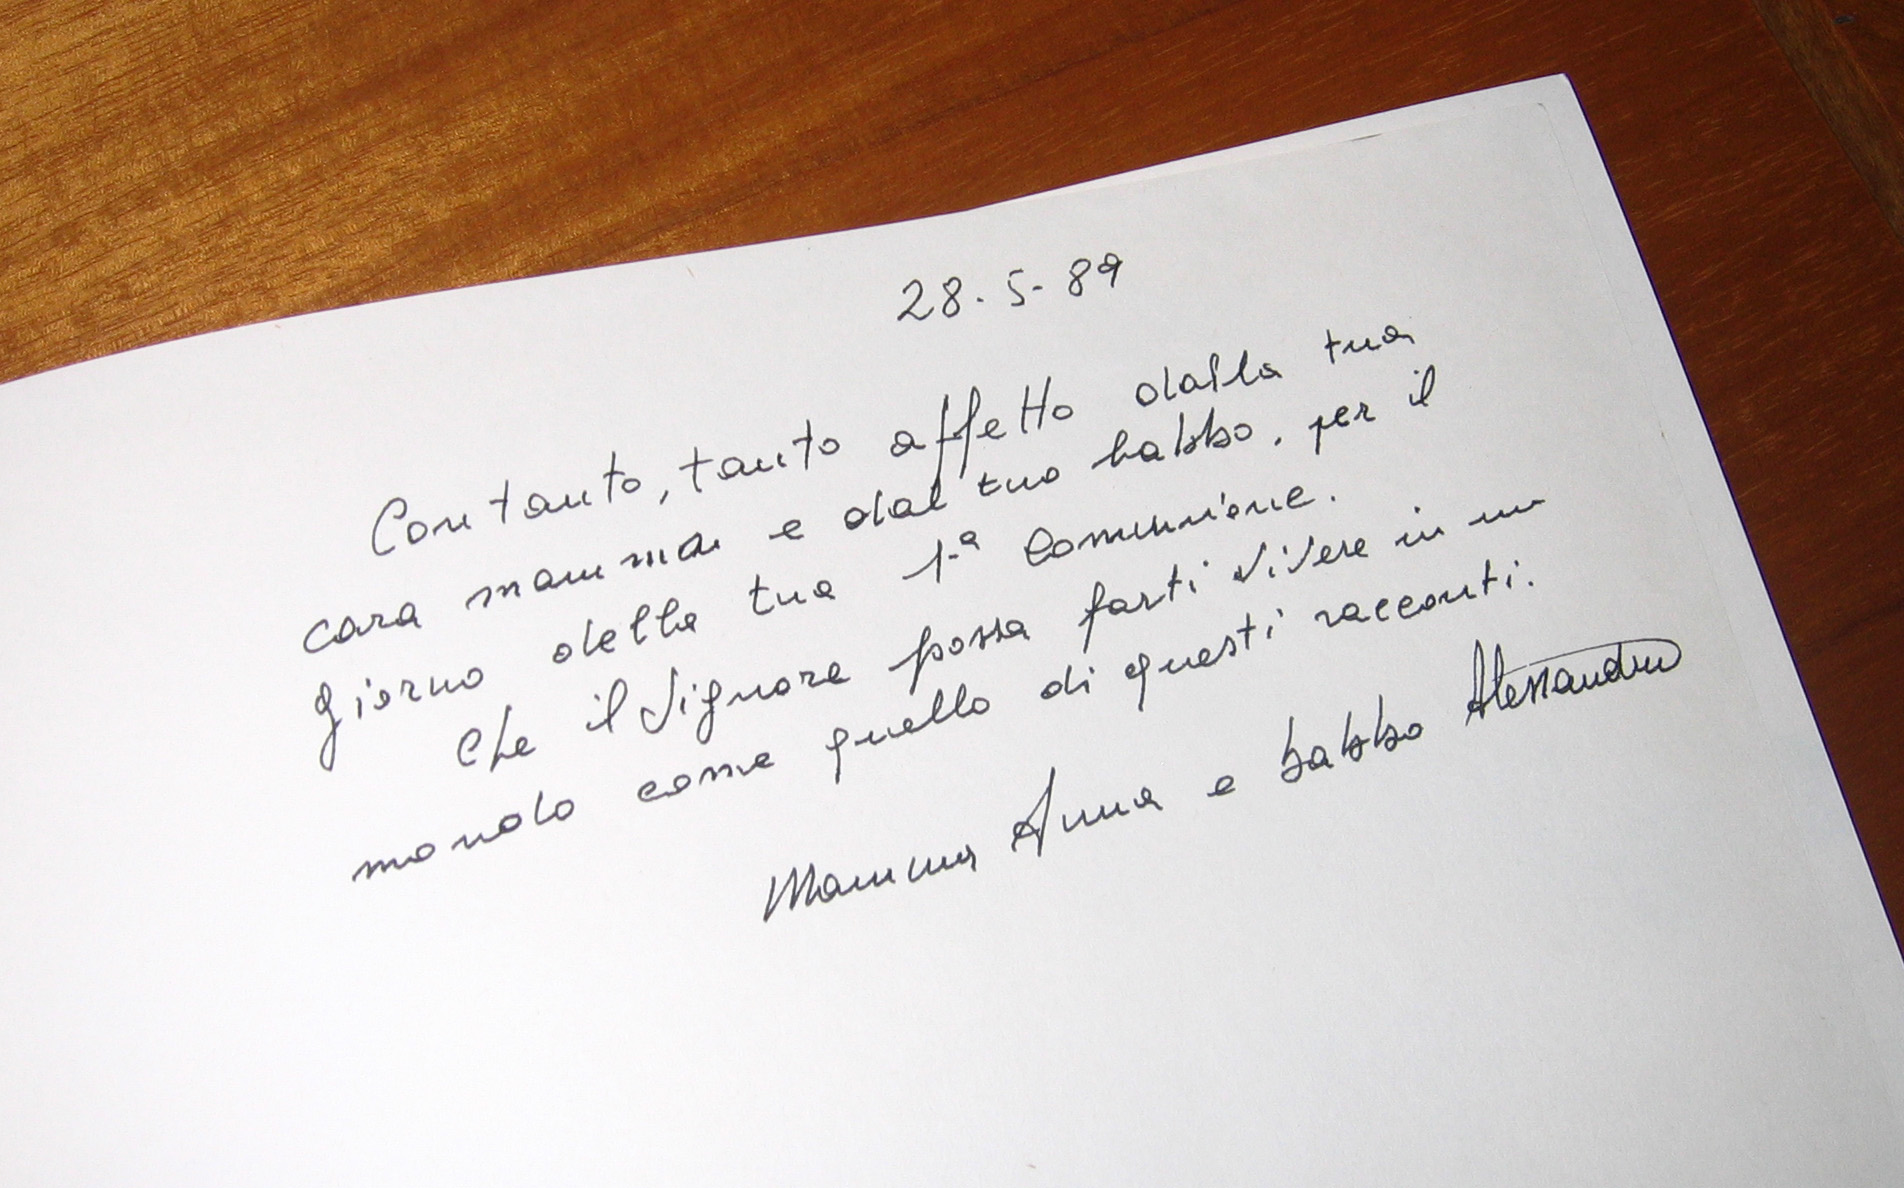 28.5.89
Con tanto, tanto affetto dalla tua
cara mamma e dal tuo babbo, per il
giorno della tua 1.ª Comunione.
Che il Signore possa farti vivere in un
mondo come quello di questi racconti.
Mamma Anna e babbo Alessandro